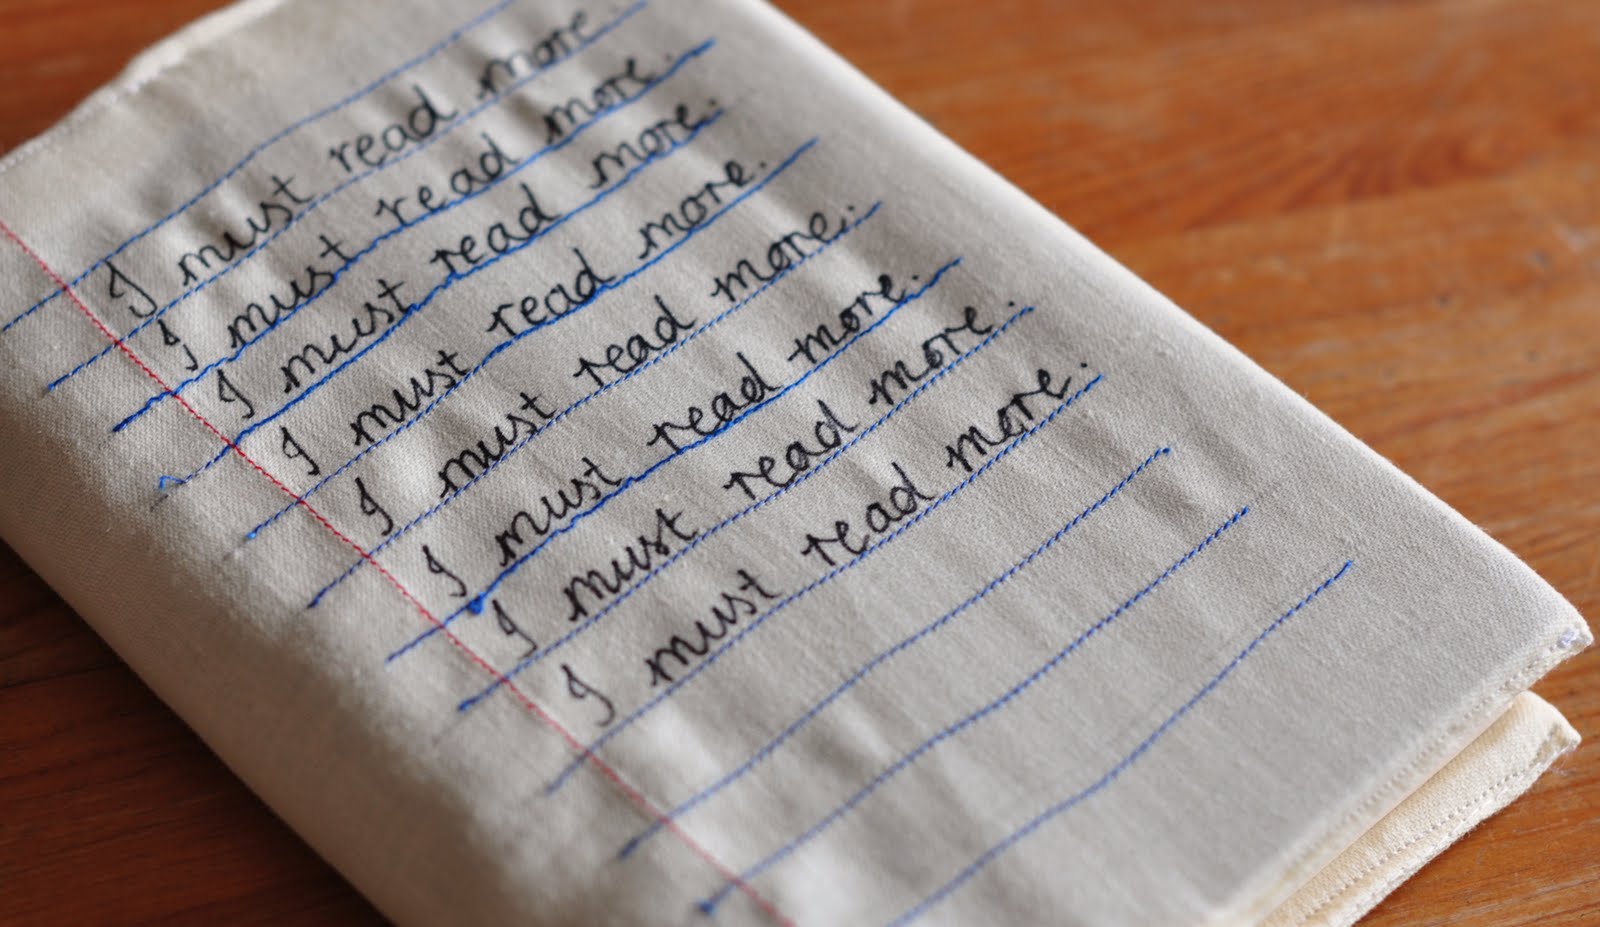 I must read more.
I must read more.
I must read more.
I must read more.
I must read more.
I must read more.
I must read more.
I must read more.